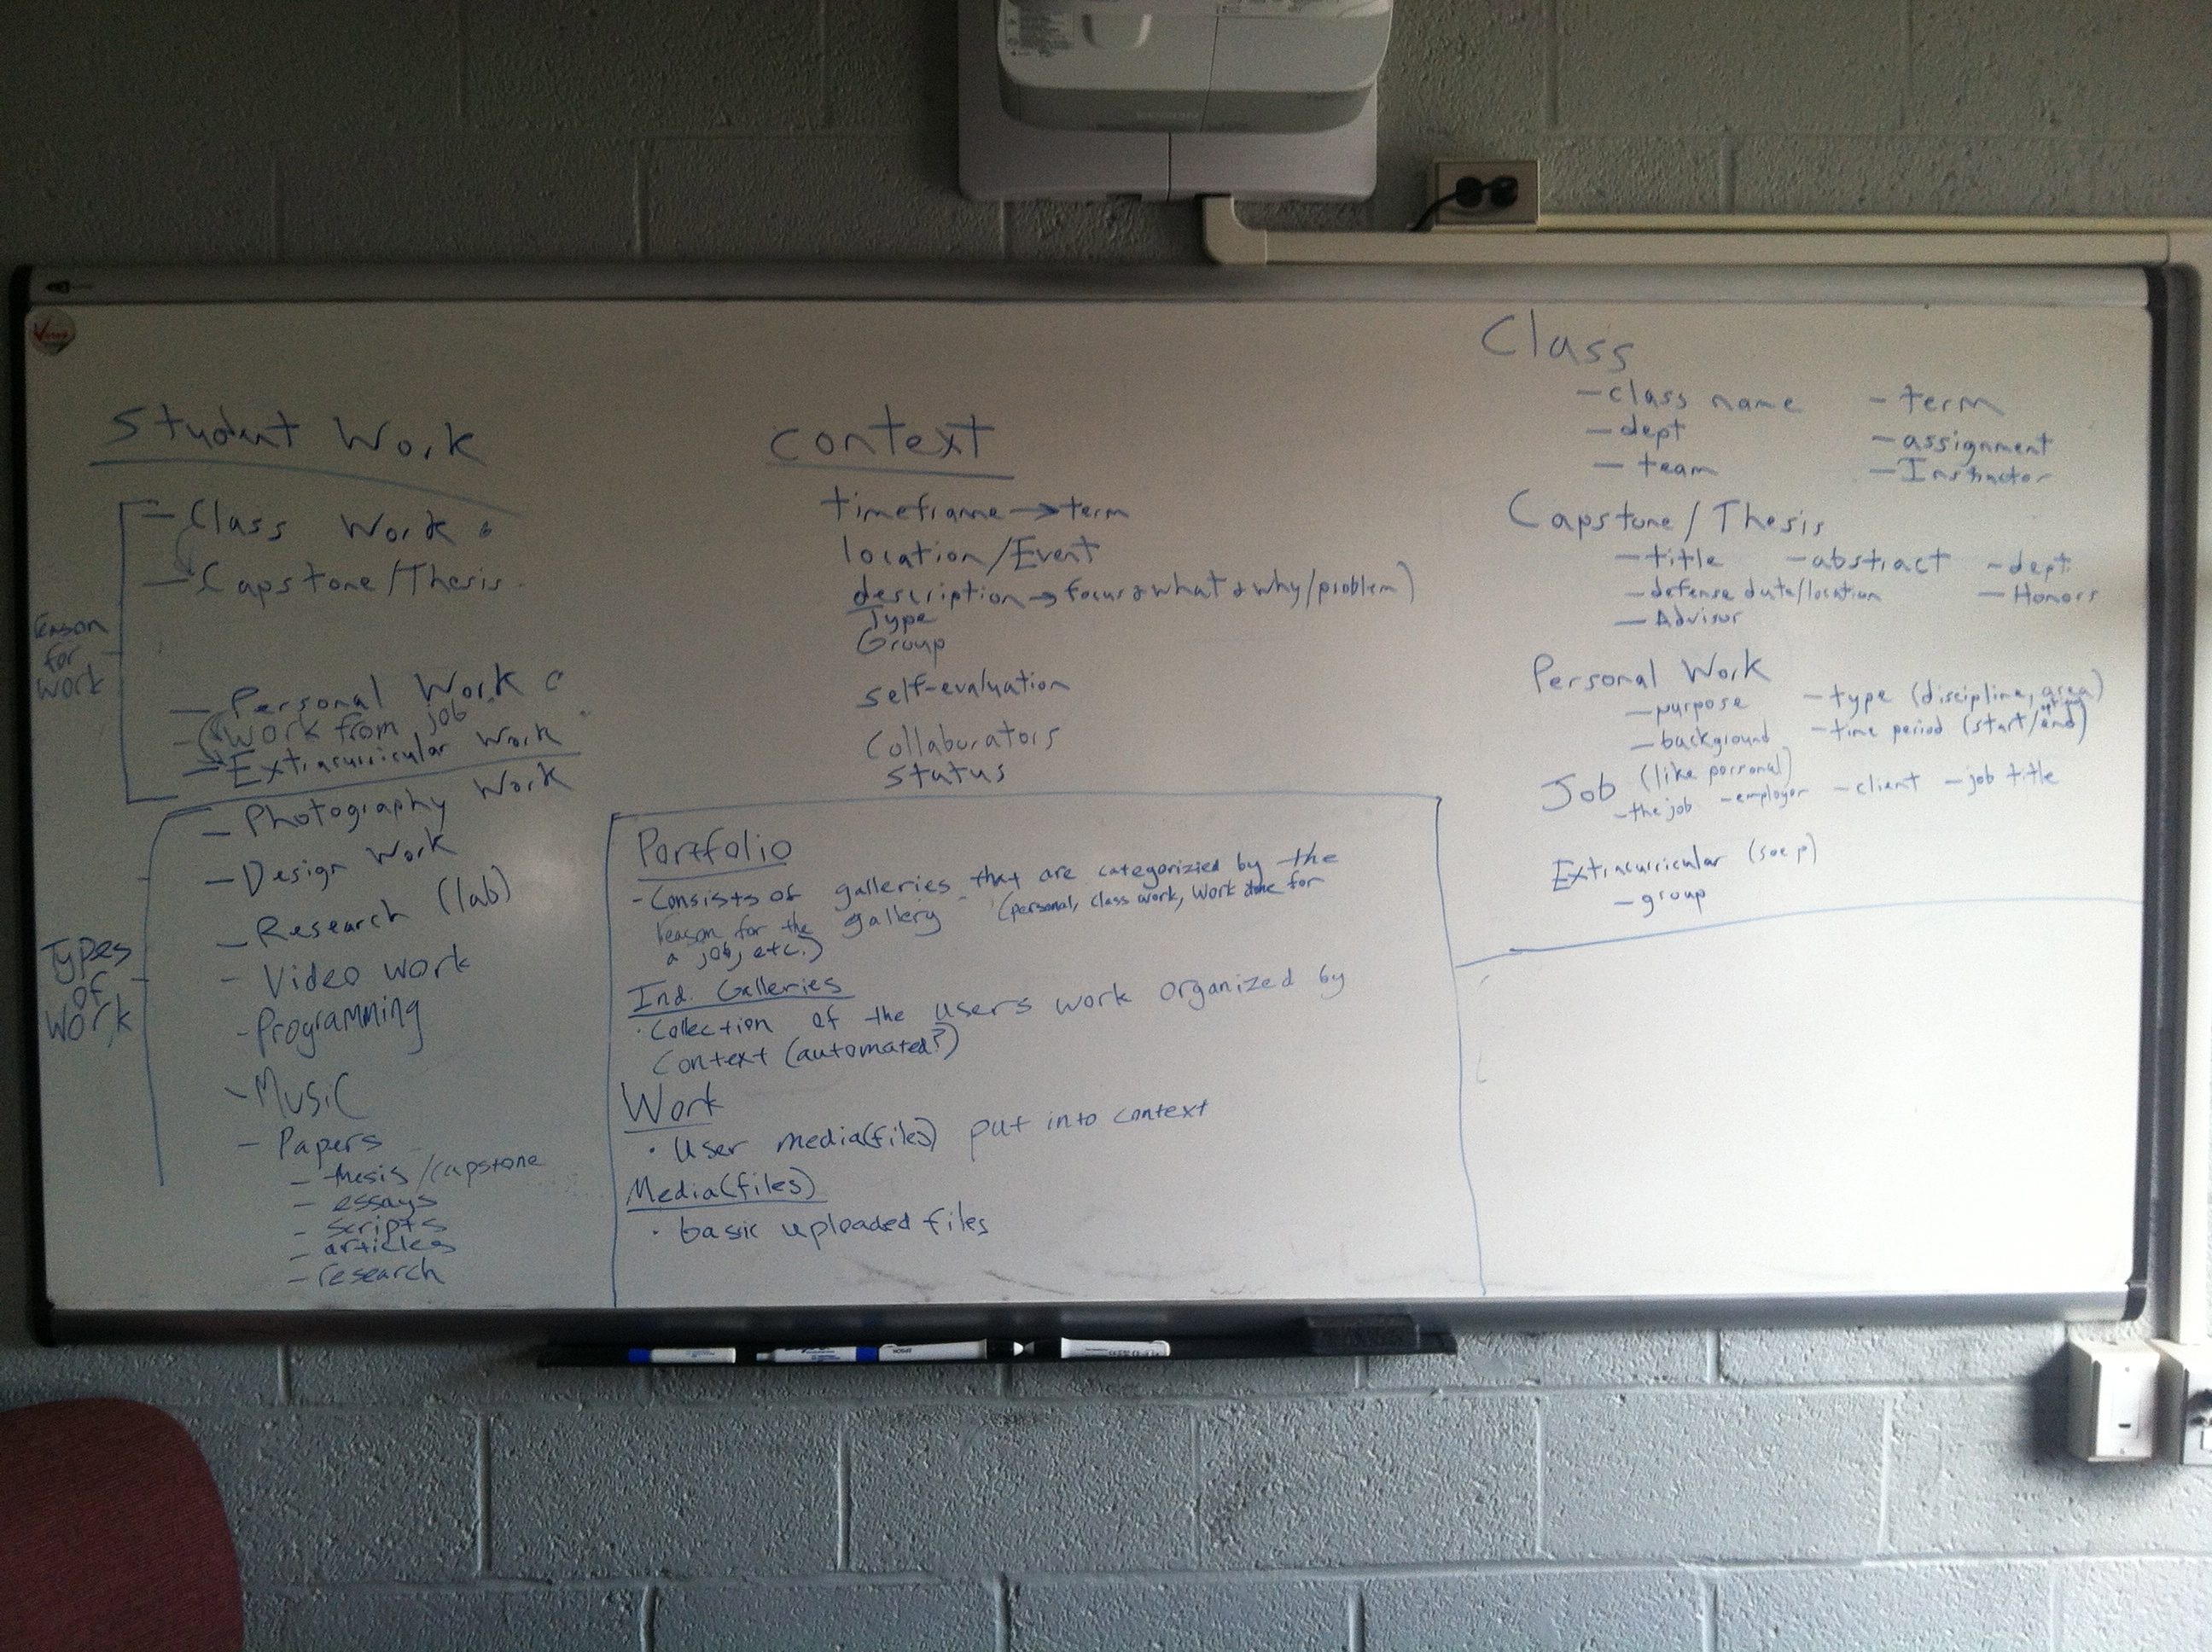 Student Work
- Class Work
- Capstone/Thesis
reason
for
work
- Personal Work
- Work from job
- Extracurricular Work
- Photography Work
- Design Work
- Research (lab)
- Video work
- Programming
- Music
- Papers
- thesis/capstone
- essays
- scripts
- articles
- research
Types
of
Work
context
timeframe → term
location/Event
description → focus & what & why/problem)
Type
Group
self-evaluation
Collaborators
status
Portfolio
- Consists of galleries that are categorizied by the
reason for the gallery - (personal, class work, work done for
a job, etc.)
Ind. Galleries
· Collection of the users work organized by
Context (automated?)
Work
· User media(files) put into context
Media(files)
· basic uploaded files
Class
- class name - term
- dept - assignment
- team - Instructor
Capstone/Thesis
- title - abstract - dept
- defense date/location - Honors
- Advisor
Personal Work
- purpose - type (discipline, area)
- background - time period (start/end)
Job (like personal)
- the job - employer - client - job title
Extracurricular
- group